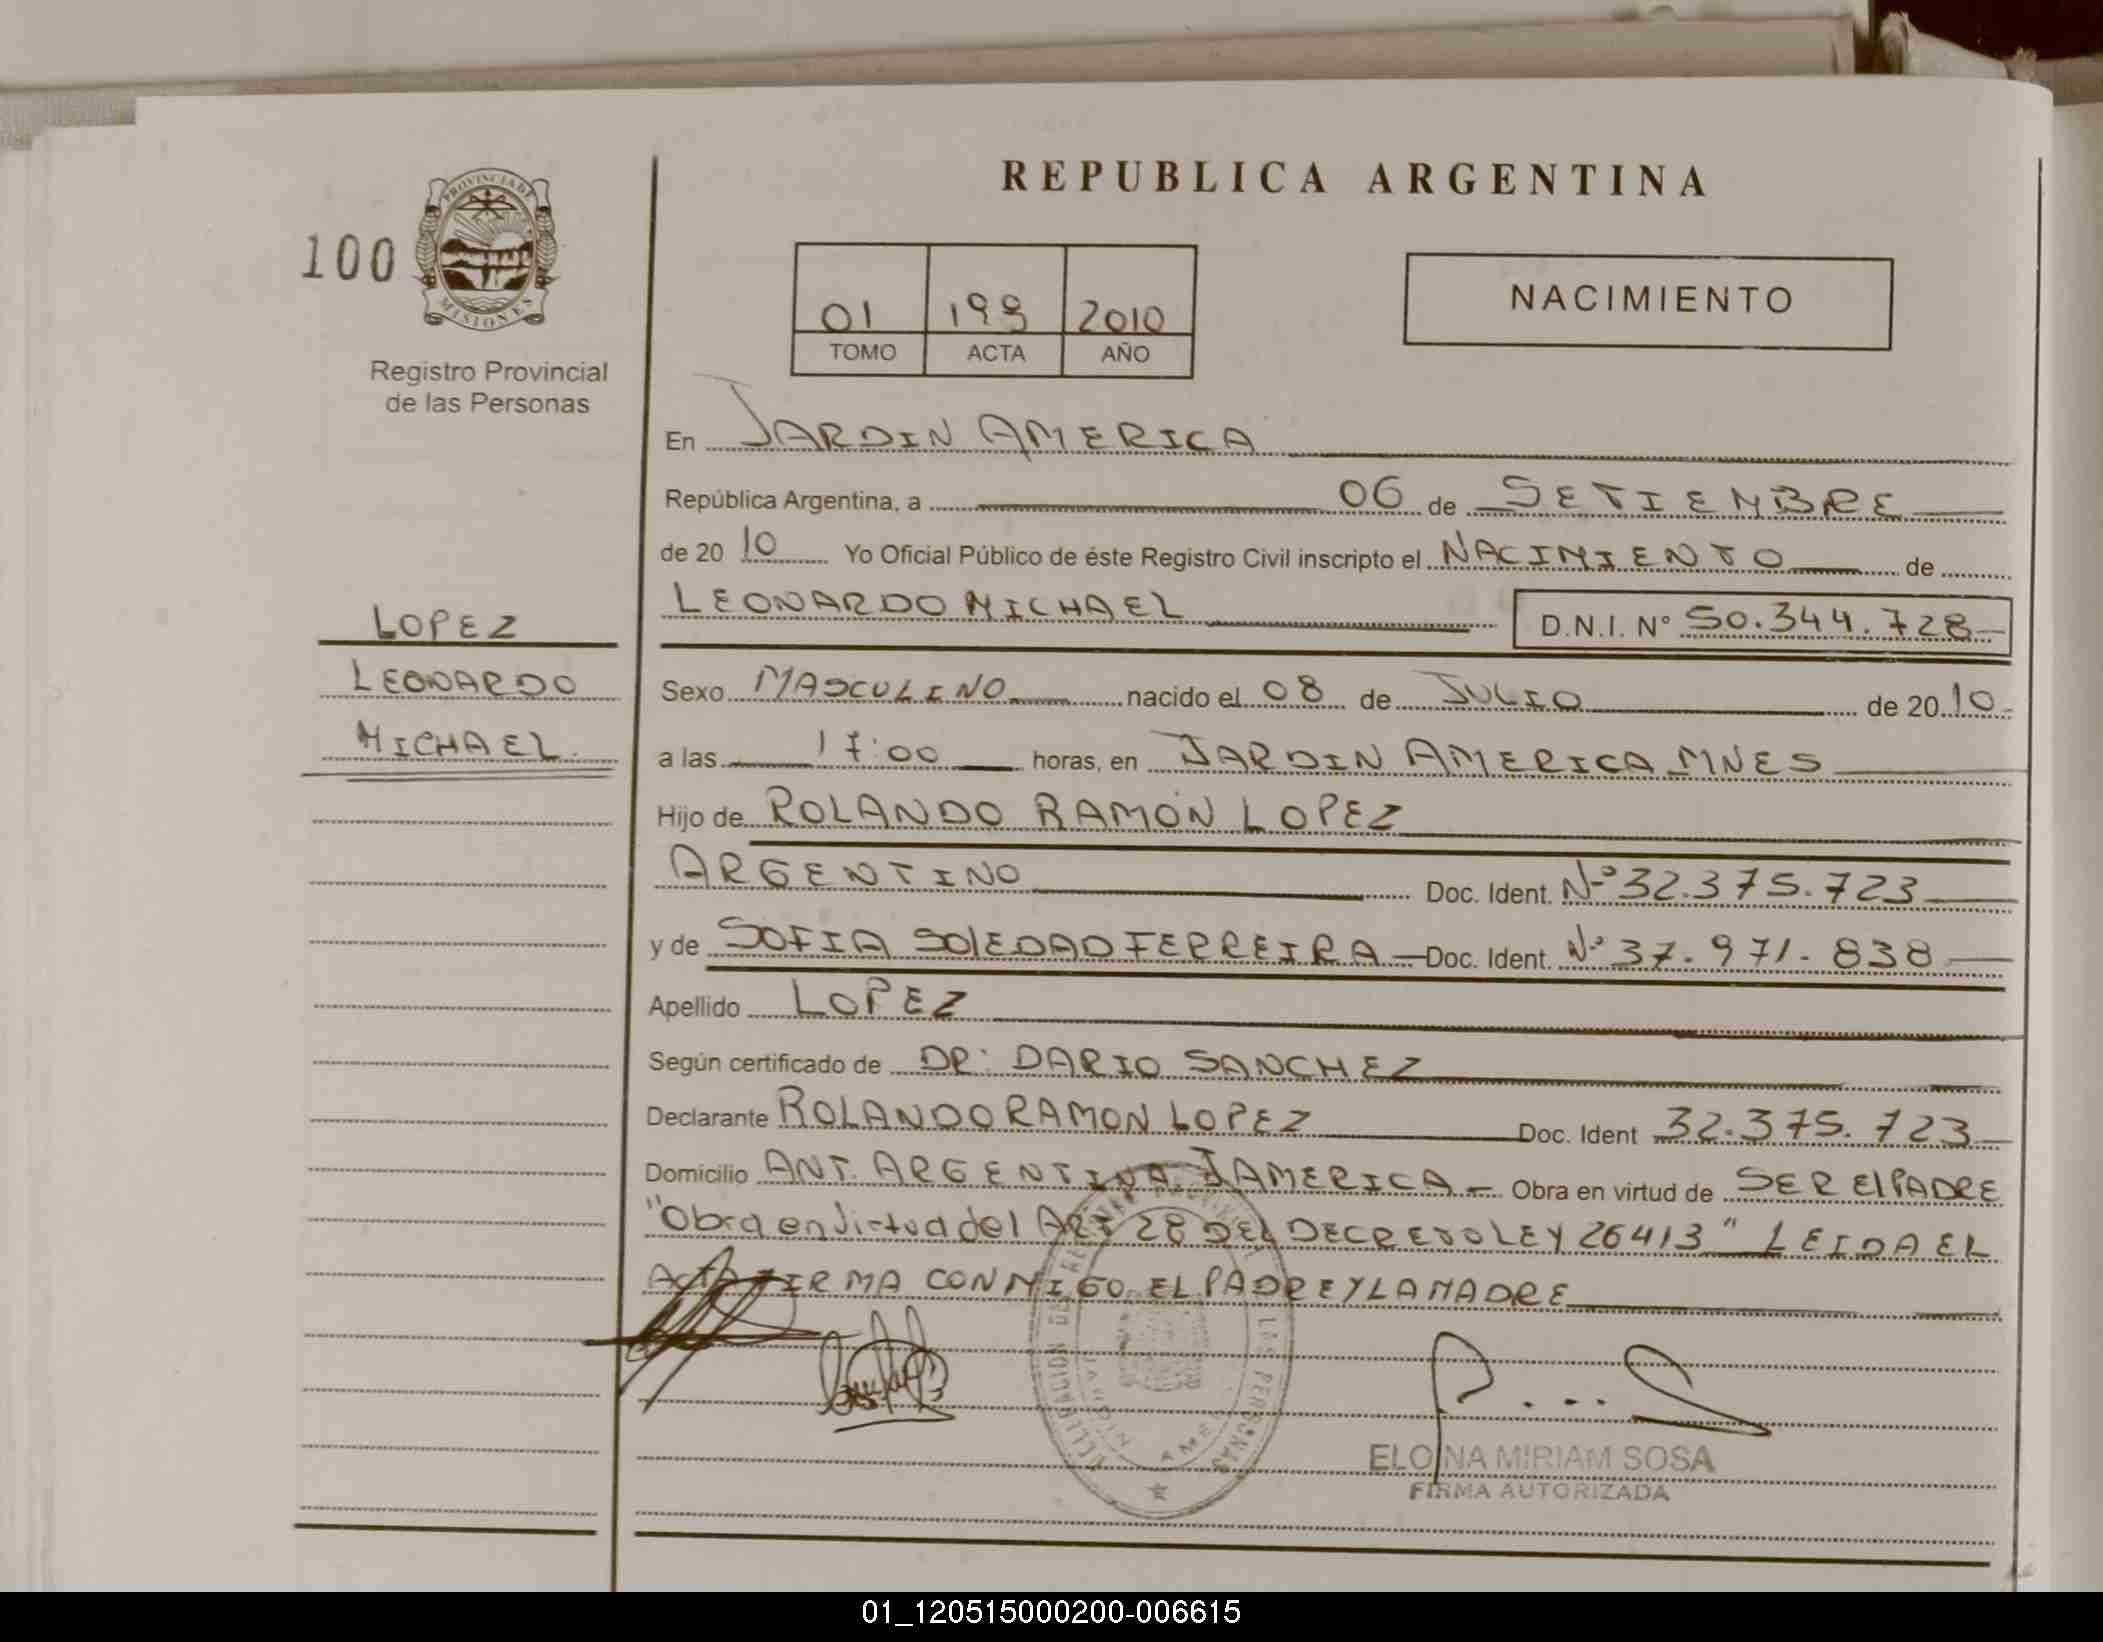 REPUBLICA ARGENTINA
100
PROVINCIA DE
MISIONES
Registro Provincial
de las Personas
01 199 2010
TOMO ACTA AÑO
NACIMIENTO
LOPEZ
LEONARDO
MICHAEL.
En JARDIN AMERICA
República Argentina, a 06 de SETIEMBRE
de 20 10 Yo Oficial Público de éste Registro Civil inscripto el NACIMIENTO de
LEONARDO MICHAEL D.N.I. N° 50.344.728
Sexo MASCULINO nacido el 08 de JULIO de 20 10
a las 17:00 horas, en JARDIN AMERICA MNES
Hijo de ROLANDO RAMÓN LOPEZ
ARGENTINO Doc. Ident. Nº 32.375.723
y de SOFIA SOLEDAD FERREIRA Doc. Ident. Nº 37.971.838
Apellido LOPEZ
Según certificado de DR: DARIO SANCHEZ
Declarante ROLANDO RAMON LOPEZ Doc. Ident 32.375.723
Domicilio ANT. ARGENTINA. J AMERICA - Obra en virtud de SER El PADRE
"Obra en virtud del ART 28 DEL DECRETO LEY 26413" LEIDA EL
ACTA FIRMA CONMIGO. EL PADRE Y LA MADRE
LAS PERSONAS
ELOINA MIRIAM SOSA
FIRMA AUTORIZADA
01_120515000200-006615